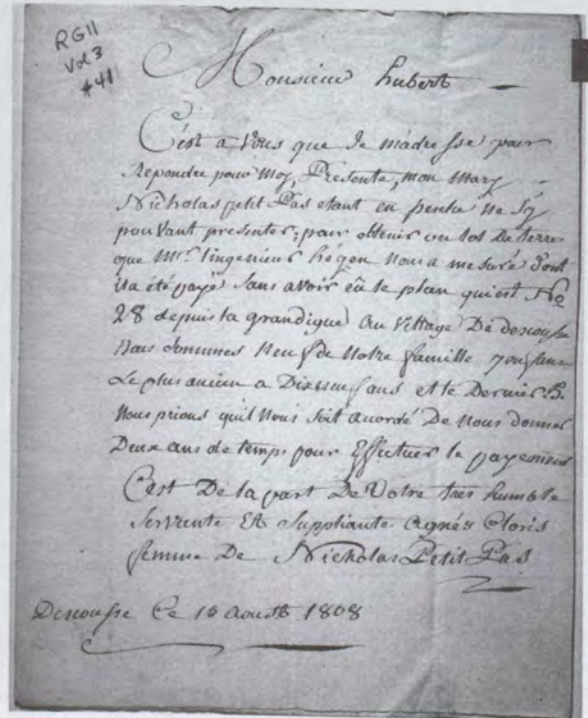 RG11
Vol 3
#41
Monsieur hubert
C'est a Vous que Je m'adresse pour
Repondre pour Moy, Presente, mon Mary
Nicholas petit Pas etant en peche Ne s'y
pouvant presenter; pour obtenir un lot De terre
que Mr. l'ingenieur hégen Nous a mesuré Dont
il a été payé Sans avoir eû le plan qui est No
28 depuis la grandigue au Village De descousse
Nous sommes Neuf de Notre famille 7 enfans
Le plus ancien a Dixneuf ans et le Dernier 3.
Nous prions quil Nous Soit acordé De Nous donner
Deux ans de temps pour Effectuer le payement
C'est De la part De Votre tres humble
Servente Et Suppliante Agnés Cloris
femme De Nicholas Petit Pas
Descousse Ce 10 Aoust 1808